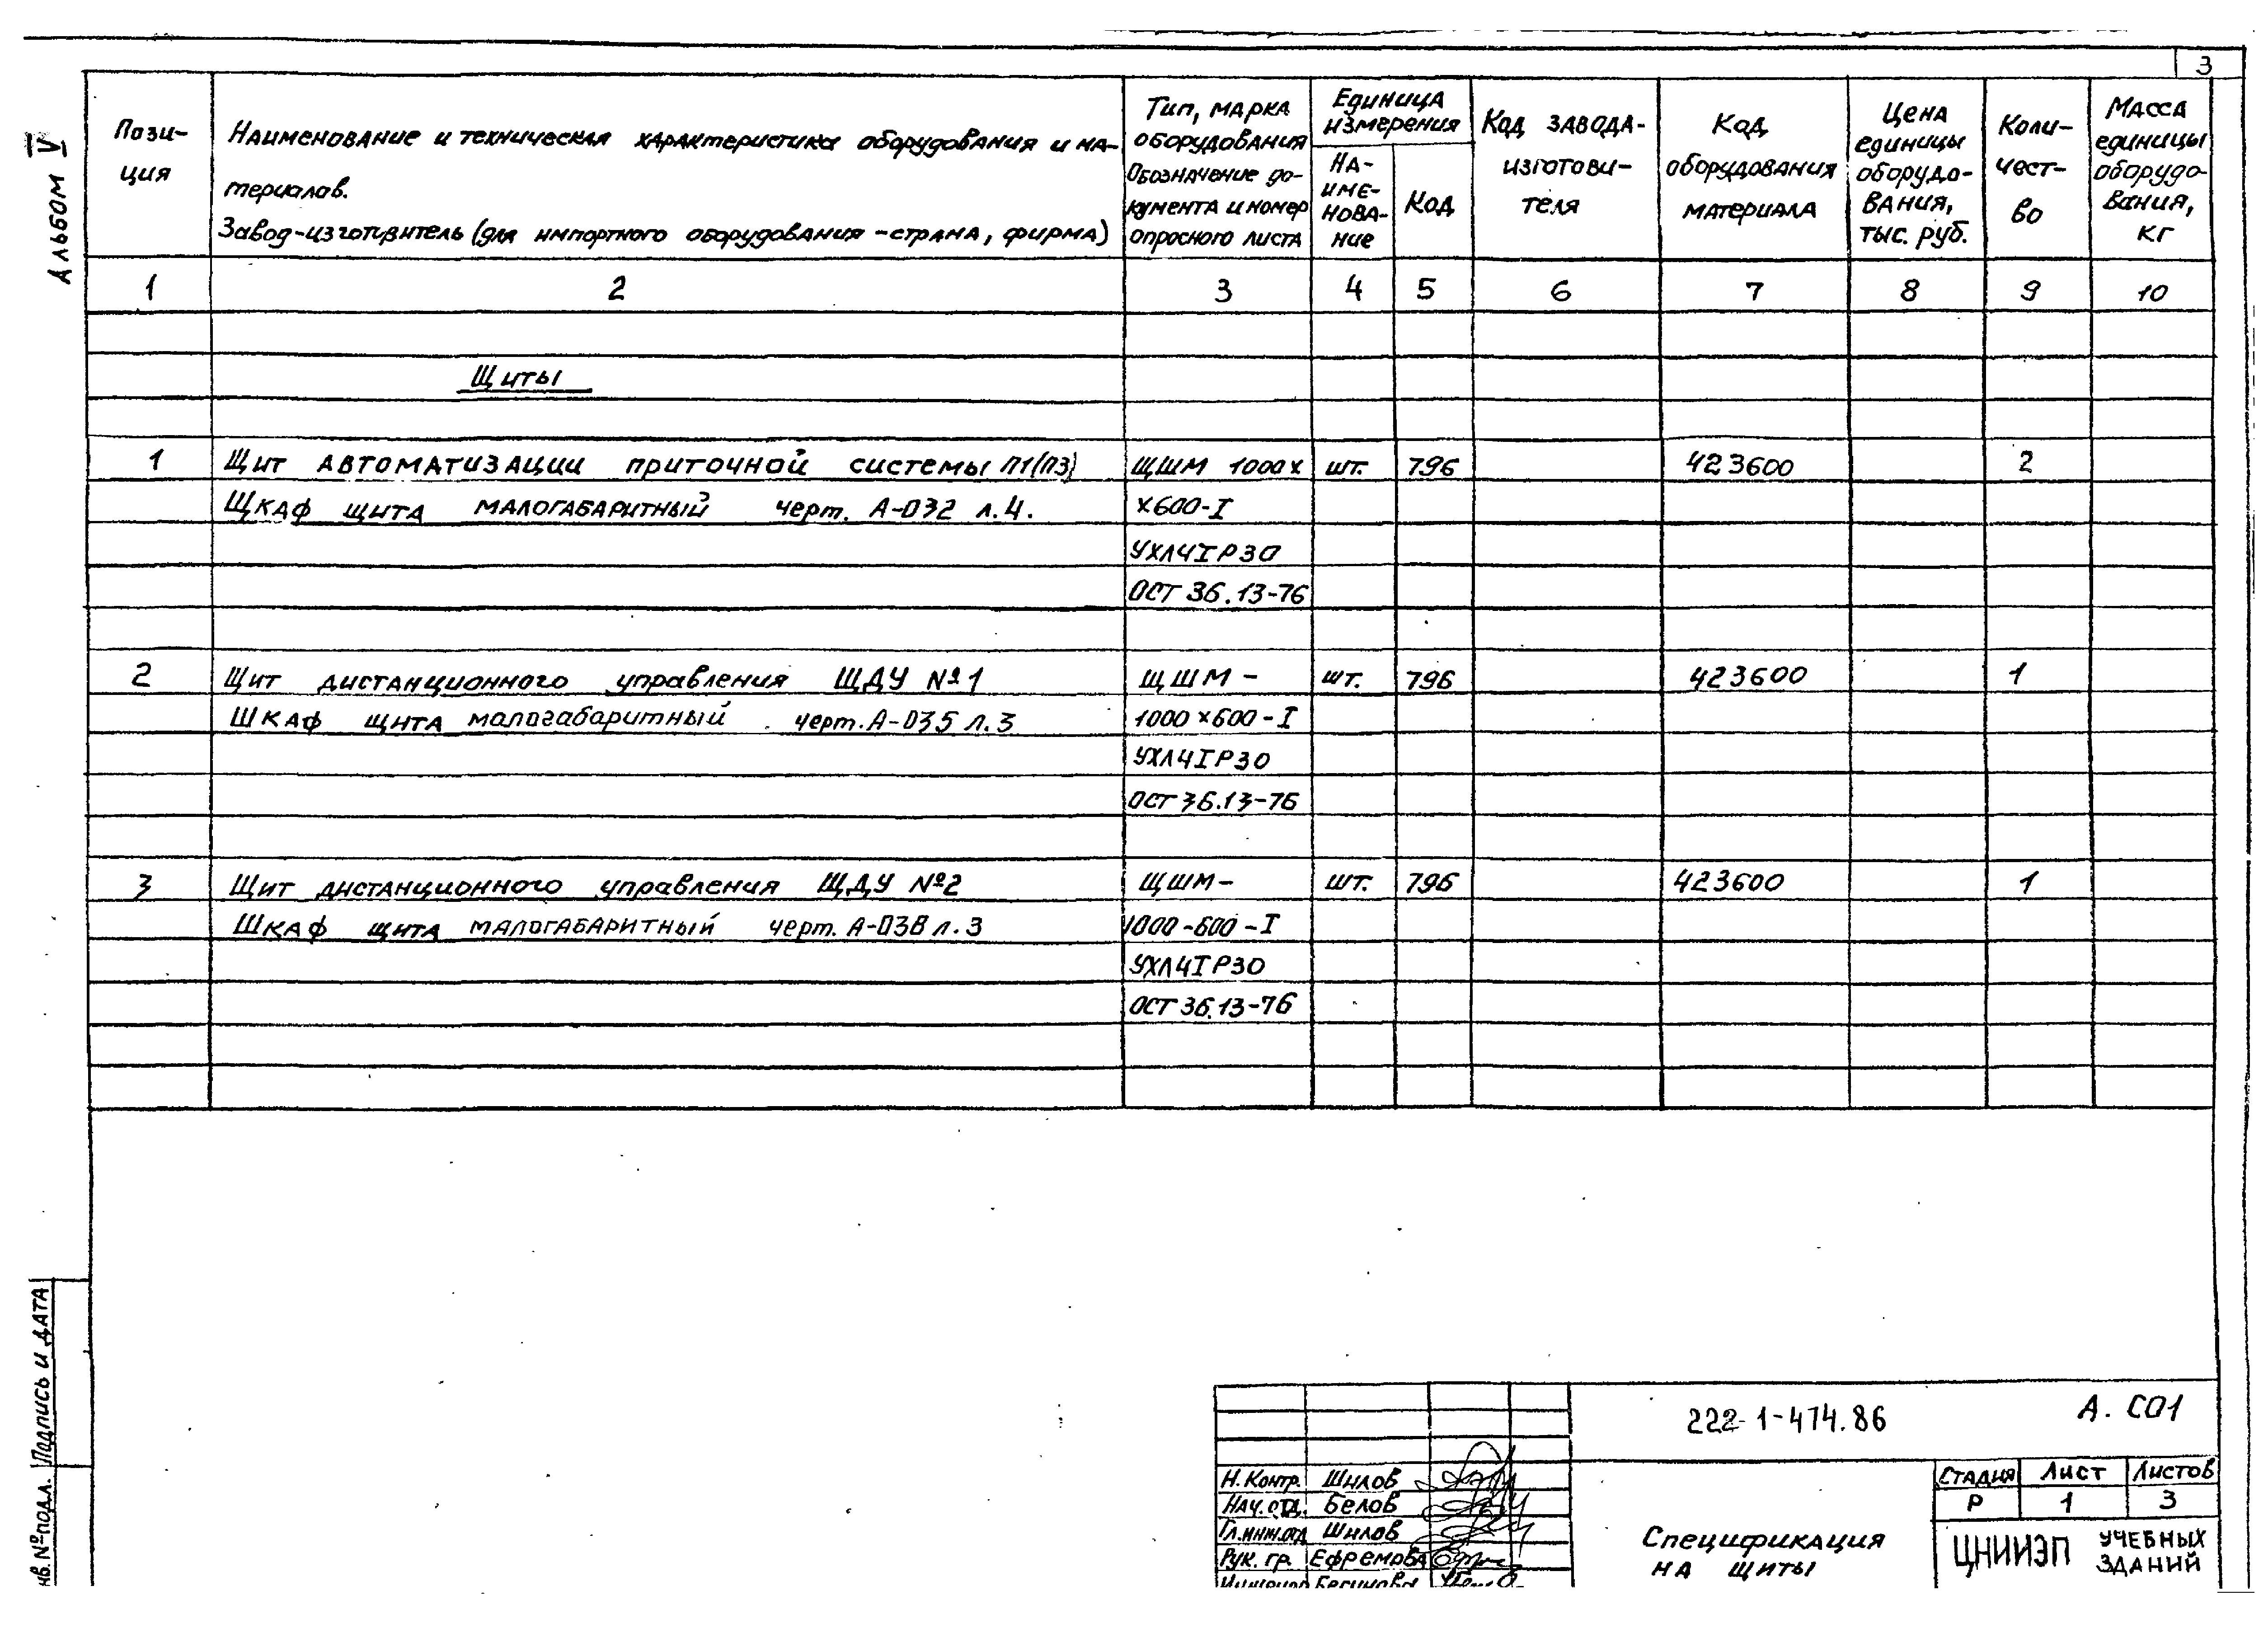 3
Альбом V
Пози-
ция
Наименование и техническая характеристика оборудования и ма-
териалов.
Завод-изготовитель (для импортного оборудования - страна, фирма)
Тип, марка
оборудования
Обозначение до-
кумента и номер
опросного листа
Единица
измерения
На-
име-
нова-
ние
Код
Код завода-
изготови-
теля
Код
оборудования
материала
Цена
единицы
оборудо-
вания,
тыс. руб.
Коли-
чест-
во
Масса
единицы
оборудо-
вания,
кг
1 2 3 4 5 6 7 8 9 10
Щиты
1 Щит автоматизации приточной системы П1(П3) ЩШМ 1000х шт. 796 423600 2
Шкаф щита малогабаритный черт. А-032 л.4. х600-I
УХЛ4IP30
ОСТ 36.13-76
2 Щит дистанционного управления ЩДУ №1 ЩШМ- шт. 796 423600 1
Шкаф щита малогабаритный черт. А-035 л.3 1000х600-I
УХЛ4IP30
ОСТ 36.13-76
3 Щит дистанционного управления ЩДУ №2 ЩШМ- шт. 796 423600 1
Шкаф щита малогабаритный черт. А-038 л.3 1000-600-I
УХЛ4IP30
ОСТ 36.13-76
Подпись и дата
нв.№ подл.
222-1-474.86 А. СО1
Н.Контр. Шилов
Нач.отд. Белов
Гл.инж.отд Шилов
Рук. гр. Ефремова
Инженер
Спецификация
на щиты
Стадия Лист Листов
Р 1 3
ЦНИИЭП учебных
зданий